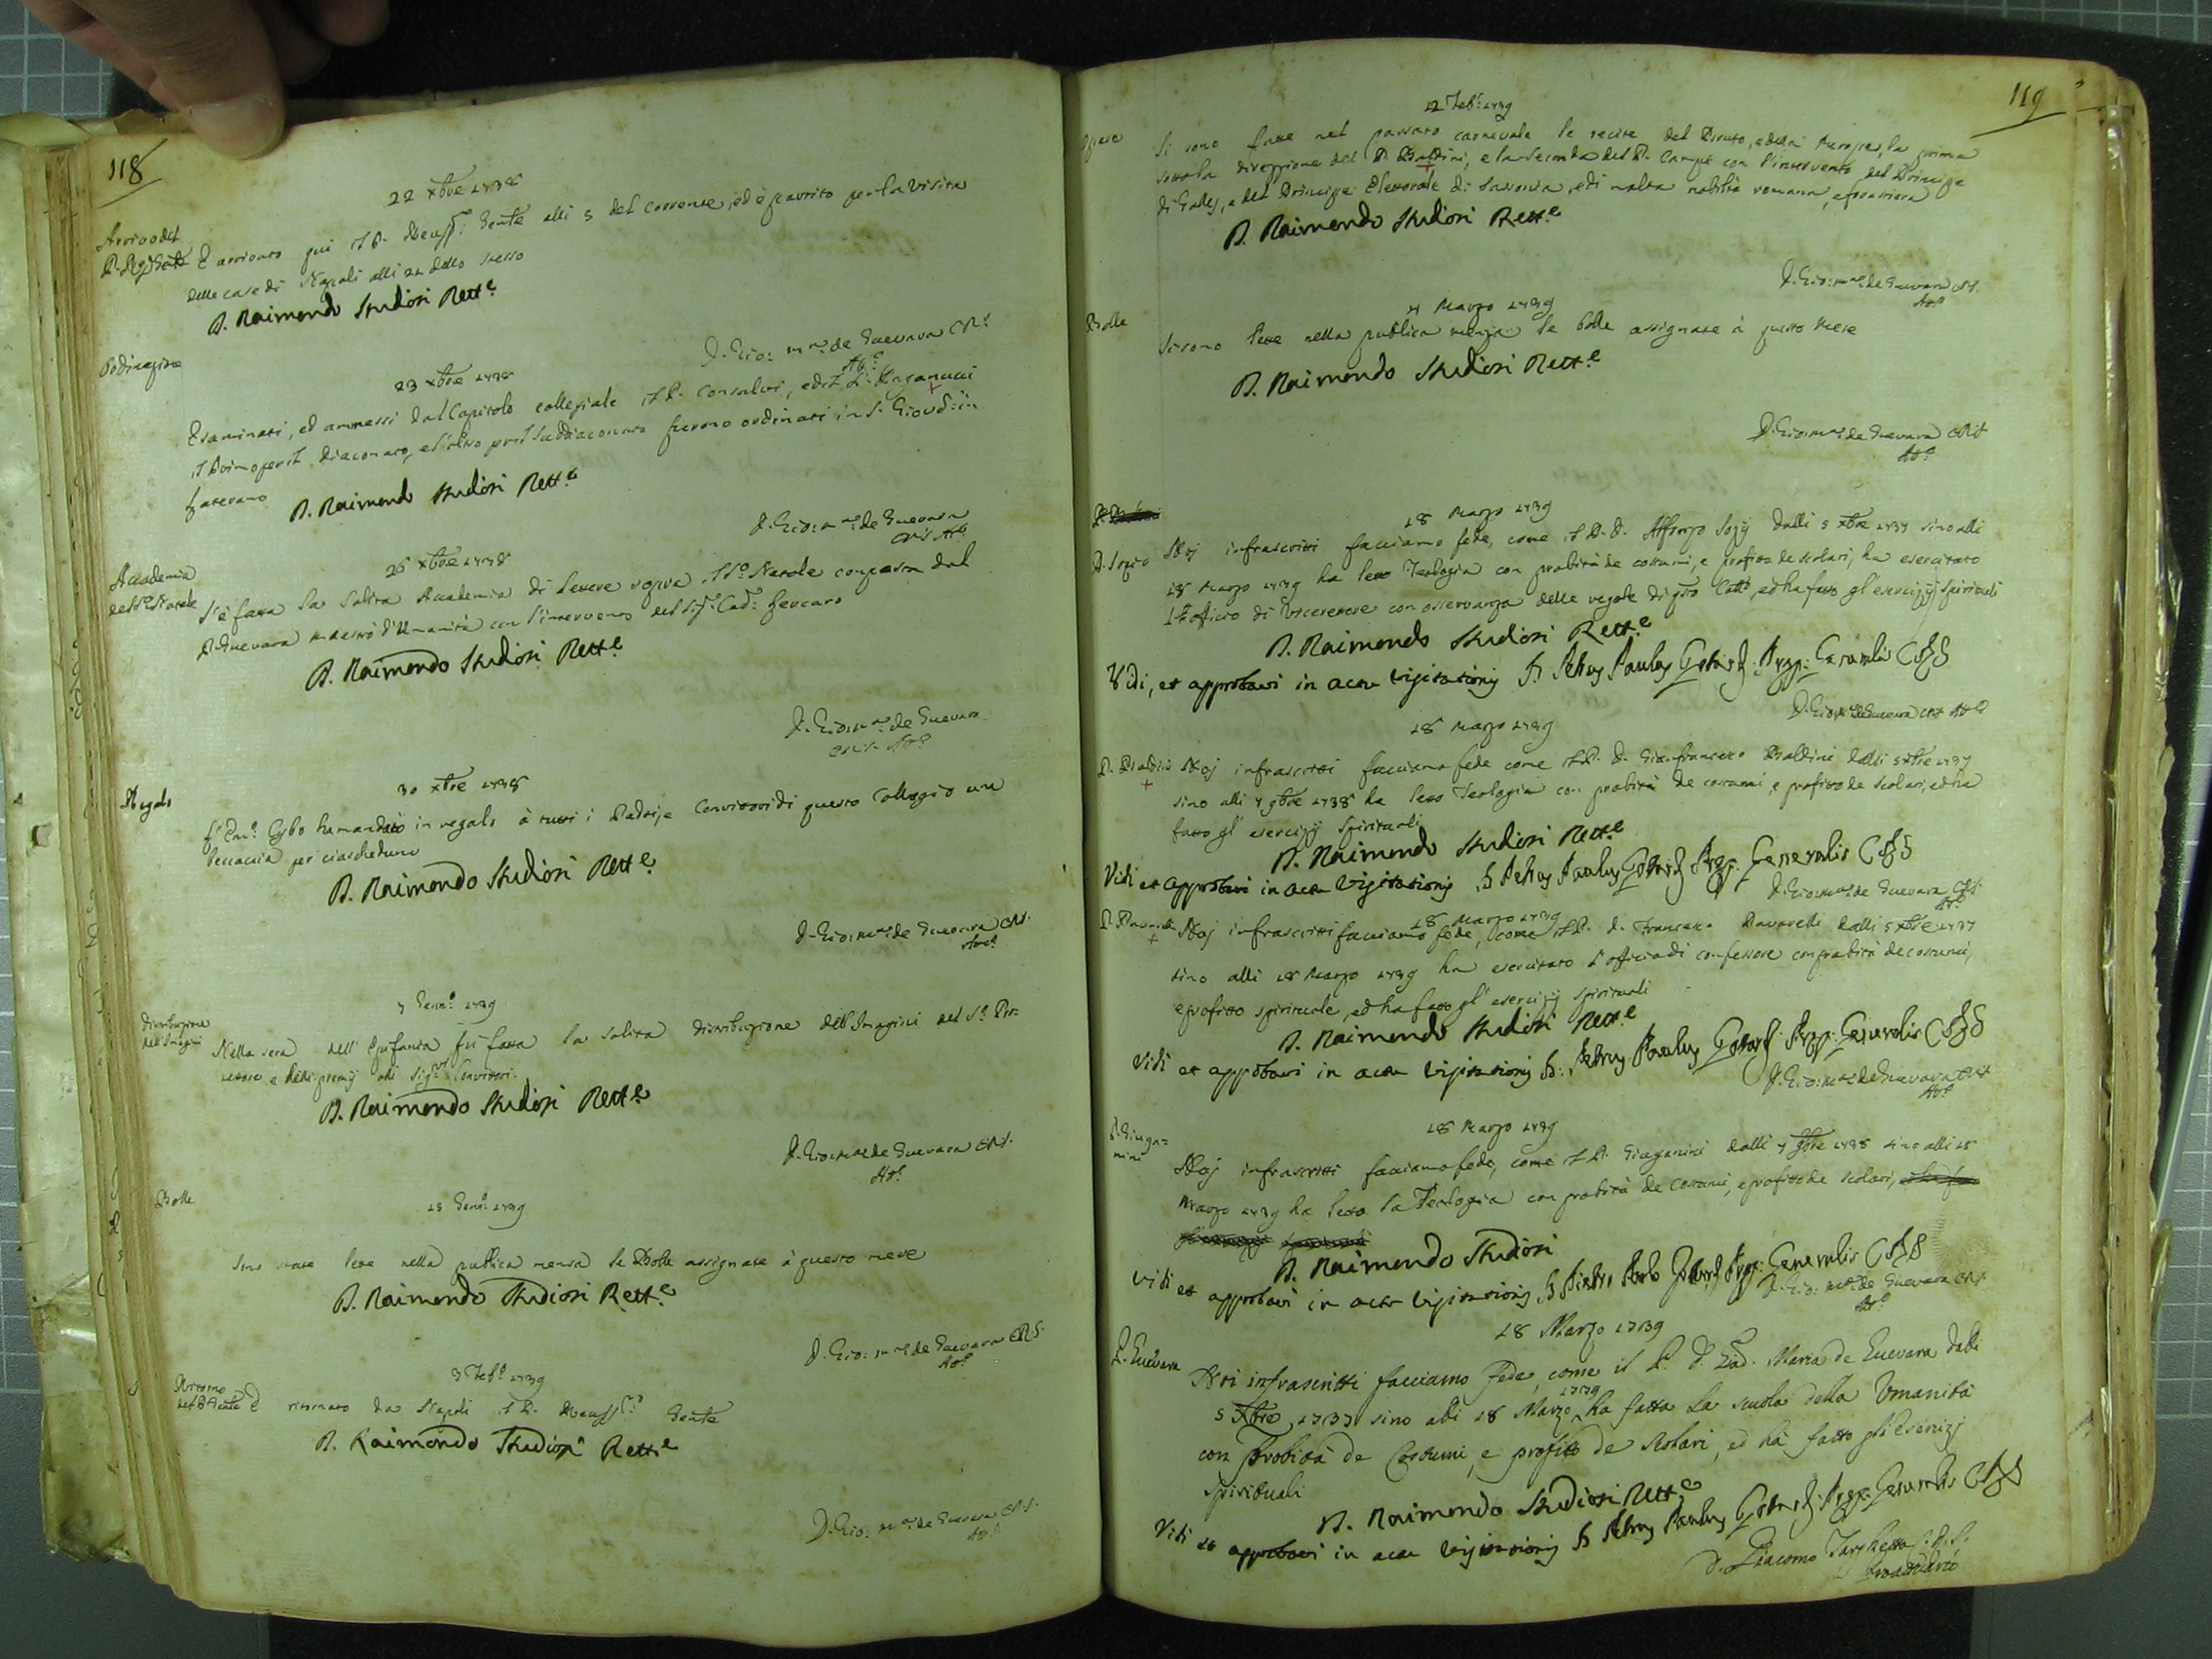 118
22 Xbre 1738
Arrivo del
P. Prepto Gente
È arrivato qui il P. Gente alli 5 del corrente, ed è partito per la visita
delle case di Napoli alli 22 dello stesso
D. Raimondo Studiosi Rett.e
D. Gio: M.a de Guevara CRS.
Att.o
Ordinazione
23 Xbre 1738
Esaminati, ed ammessi dal Capitolo collegiale il P. Consalvi, ed il P. Paganucci
il primo per il Diaconato, e l'altro per il Suddiaconato furono ordinati in S. Giovd: in
Laterano
D. Raimondo Studiosi Rett.e
D. Gio: M.a de Guevara
CRS Att.o
Accademia
del S.o Natale
26 Xbre 1738
S'è fatta la solita Accademia di lettere sopra il S.o Natale composta dal
P. Guevara maestro d'Umanità con l'intervento del Sig.r Cad.
D. Raimondo Studiosi Rett.e
D. Gio: M.a de Guevara
CRS. Att.o
Regalo
30 Xbre 1738
L'Em.o Cybo ha mandato in regalo à tutti i Padri, e Convittori di questo Collegio una
per ciascheduno
D. Raimondo Studiosi Rett.e
D. Gio: M.a de Guevara CRS.
Att.o
Distribuzione
dell'Imagini
7 Genn.o 1739
Nella sera dell'Epifania fù fatta la solita distribuzione dell'Imagini del S.o Pro-
tettore e delli premij alli Sig.ri Convittori.
D. Raimondo Studiosi Rett.e
D. Gio: M.a de Guevara CRS.
Att.o
Bolle
15 Genn.o 1739
Sono state lette nella publica mensa le Bolle assignate à questo mese
D. Raimondo Studiosi Rett.e
D. Gio: M.a de Guevara CRS.
Att.o
Ritorno
del P. Gente
3 Feb.o 1739
È ritornato da Napoli il P. Gente
D. Raimondo Studiosi Rett.e
D. Gio: M.a de Guevara CRS.
Att.o
119
12 Feb.o 1739
Opere
Si sono fatte nel passato carnevale le recite del Bruto, e della Merope, la prima
sotto la direzzione del P. Baldini, e la seconda del P. Campi con l'intervento del Principe
di Galles, e del Principe Elettorale di Sassonia, e di molta nobiltà romana, e forastiera
D. Raimondo Studiosi Rett.e
D. Gio: M.a de Guevara CRS.
Att.o
Bolle
4 Marzo 1739
Si sono lette nella publica mensa le bolle assignate à questo mese
D. Raimondo Studiosi Rett.e
D. Gio: M.a de Guevara CRS
Att.o
18 Marzo 1739
P. Sozio
Noj infrascritti facciamo fede, come il P. D. Alfonzo Sozij dalli 5 Xbre 1737 sino alli
18 Marzo 1739 ha letto Teologia con probità de costumi, e profitto de scolari, ha esercitato
l'Officio di Vicerettore con osservanza delle regole di q.sto Coll.o, ed ha fatto gl'esercizij spirituali
D. Raimondo Studiosi Rett.e
Vidi, et approbavi in actu Visitationis D. Petrus Paulus Gottard Prep: Generalis CRS
D. Gio: M.a de Guevara CRS Att.o
18 Marzo 1739
P. Baldini
Noj infrascritti facciamo fede come il P. D. Gianfrancesco Baldini dalli 5 Xbre 1737
sino alli 4 9bre 1738 ha letto Teologia con probità de costumi, e profitto de scolari, ed ha
fatto gl'esercizij spirituali
D. Raimondo Studiosi Rett.e
Vidi et approbavi in actu Visitationis D. Petrus Paulus Gottard Prep: Generalis CRS
D. Gio: M.a de Guevara CRS.
Att.o
18 Marzo 1739
Noj infrascritti facciamo fede, come il P. D. Francesco dalli 5 Xbre 1737
sino alli 18 Marzo 1739 ha esercitato l'officio di confessore con probità de costumi,
e profitto spirituale, ed ha fatto gl'esercizij spirituali
D. Raimondo Studiosi Rett.e
Vidi et approbavi in actu Visitationis D. Petrus Paulus Gottard Prep: Generalis CRS
D. Gio: M.a de Guevara CRS
Att.o
P. Giuga=
nini
18 Marzo 1739
Noj infrascritti facciamo fede, come il P. Giuganini dalli 4 9bre 1738 sino alli 18
Marzo 1739 ha letto la Teologia con probità de costumi, e profitto de scolari,
D. Raimondo Studiosi
Vidi et approbavi in actu Visitationis D. Pietro Paolo Gottard Prep: Generalis CRS
D. Gio: M.a de Guevara CRS.
Att.o
18 Marzo 1739
P. Guevara
Noi infrascritti facciamo fede, come il P. D. Gio. Maria de Guevara dalli
5 Xbre 1737 sino alli 18 Marzo 1739 ha fatta la scuola della Umanità
con probità de Costumi, e profitto de Scolari, ed hà fatto gli esercizj
spirituali
D. Raimondo Studiosi Rett.e
Vidi et approbavi in actu Visitationis D. Petrus Paulus Gottard Prep: Generalis CRS
D. Giacomo Targhetta C.R.S.
Proattuario